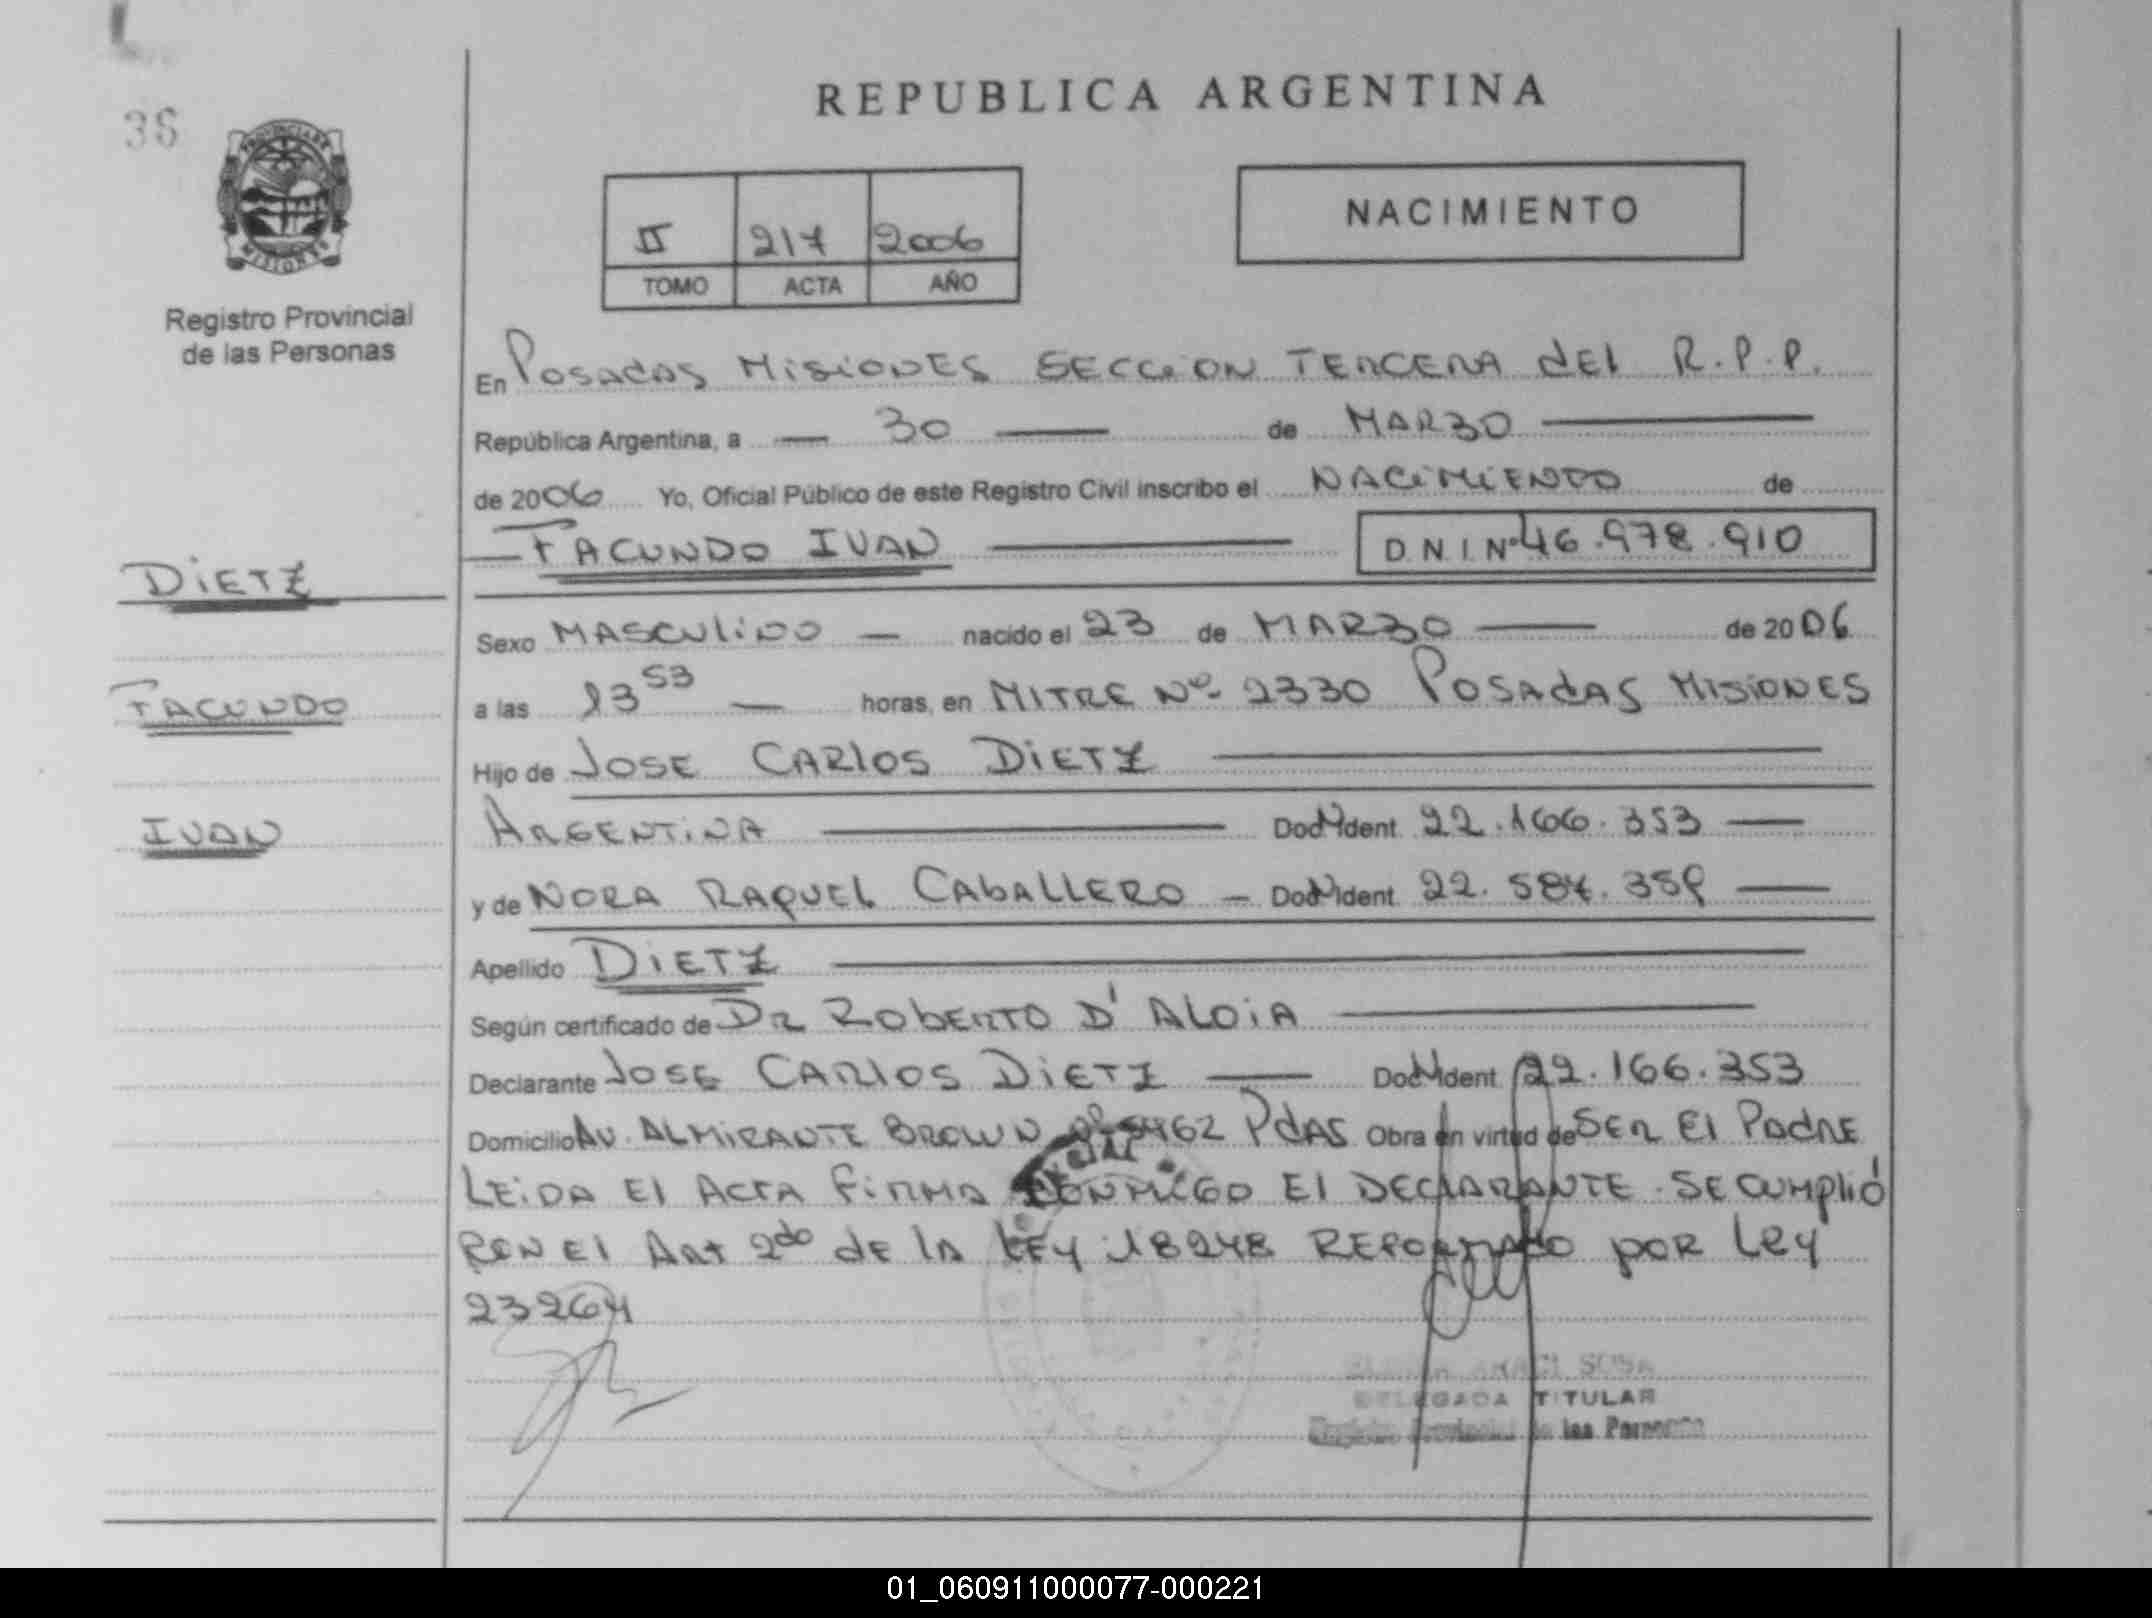 REPUBLICA ARGENTINA
36
PROVINCIA DE
MISIONES
Registro Provincial
de las Personas
II 217 2006
TOMO ACTA AÑO
NACIMIENTO
En POSADAS MISIONES SECCION TERCERA dEl R.P.P.
República Argentina, a — 30 — de MARZO —
de 2006 Yo, Oficial Público de este Registro Civil inscribo el NACIMIENTO de
— FACUNDO IVAN — D.N.I. Nº 46.978.910
DIETZ
FACUNDO
IVAN
Sexo MASCULINO — nacido el 23 de MARZO — de 2006
a las 13 53 — horas, en MITRE Nº 2330 POSADAS MISIONES
Hijo de JOSE CARLOS DIETZ —
ARGENTINA — Doc. Ident. 22.166.353 —
y de NORA RAQUEL CABALLERO — Doc. Ident. 22.587.359 —
Apellido DIETZ —
Según certificado de DR ROBERTO D' ALOIA —
Declarante JOSE CARLOS DIETZ — Doc. Ident. 22.166.353
Domicilio AV. ALMIRANTE BROWN Nº 5462 PdAS Obra en virtud de SER El PADRE
LEIDA El ACTA FIRMA CONMIGO El DECLARANTE. SE CUMPLIÓ
CON El ART 2do dE lA LEY 18248 REFORMADO POR LEY
23264
ARACI SOSA
DELEGADA TITULAR
Registro Provincial de las Personas
01_060911000077-000221